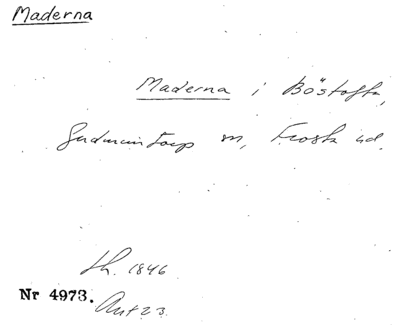 Maderna
Maderna i Böstofta,
Gudmuntorp sn, Frosta hd.
Lh. 1846
Nr 4973.
Ant 23.